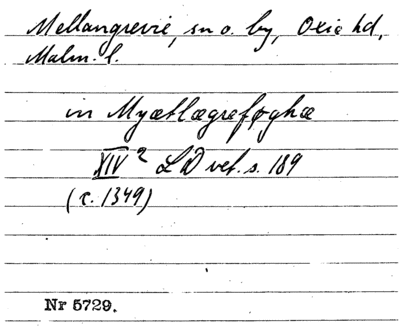 Mellangrevie, sn o. by, Oxie hd,
Malm. l.
in Myætlægreføghæ
XIV 2 LD vet. s. 189
(c. 1349)
Nr 5729.